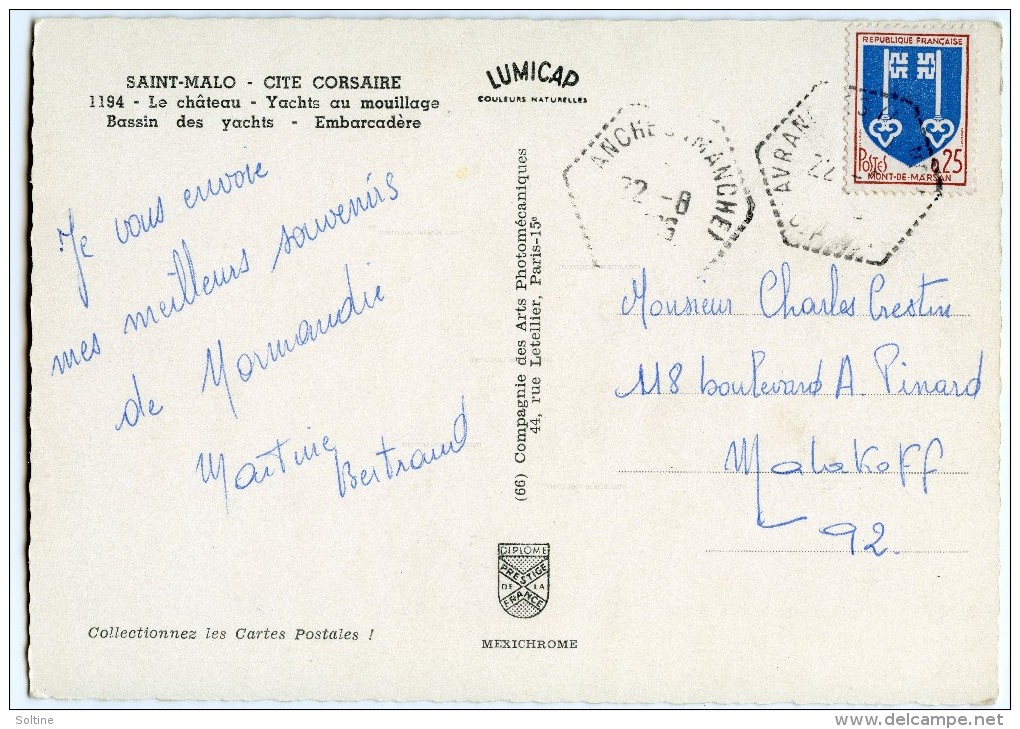 SAINT-MALO - CITE CORSAIRE
1194 - Le château - Yachts au mouillage
Bassin des yachts - Embarcadère
LUMICAP
COULEURS NATURELLES
REPUBLIQUE FRANÇAISE
POSTES 0,25
MONT-DE-MARSAN
(MANCHE)
22 -8
AVRANCHES
22
Je vous envoie
mes meilleurs souvenirs
de Normandie
Martine
Bertrand
(66) Compagnie des Arts Photomécaniques
44, rue Letellier, Paris-15e
Monsieur Charles Crestin
118 boulevard A. Pinard
Malakoff
92.
DIPLOME
PRESTIGE
DE LA
FRANCE
MEXICHROME
Collectionnez les Cartes Postales !
Soltine
www.delcampe.net